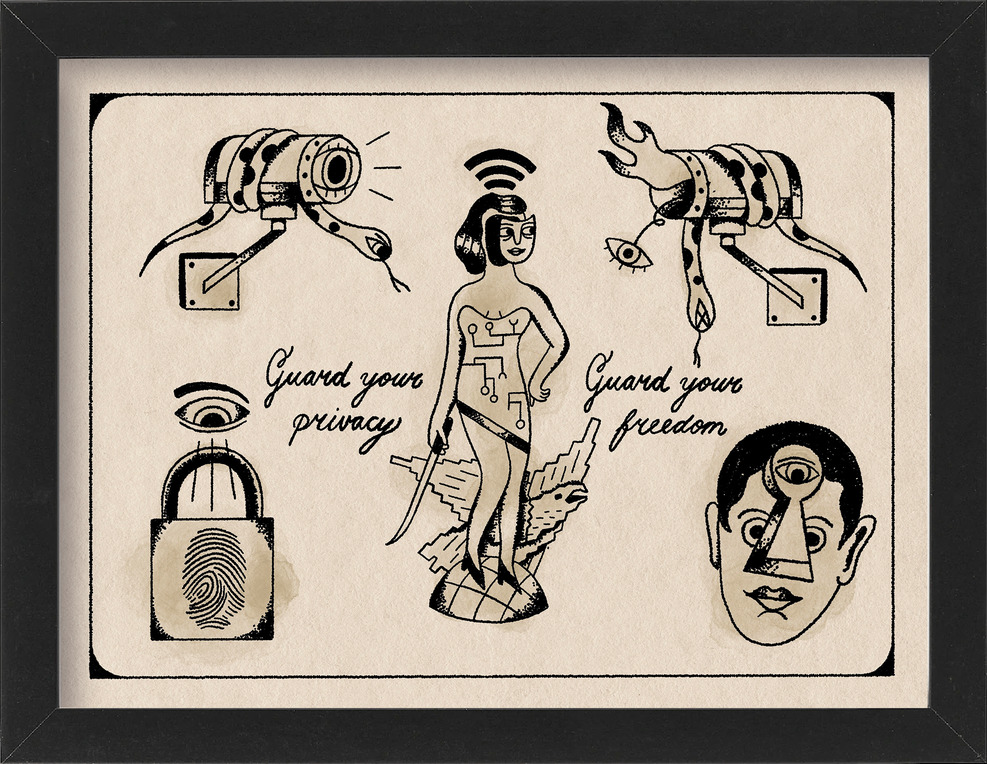 Guard your
privacy
Guard your
freedom